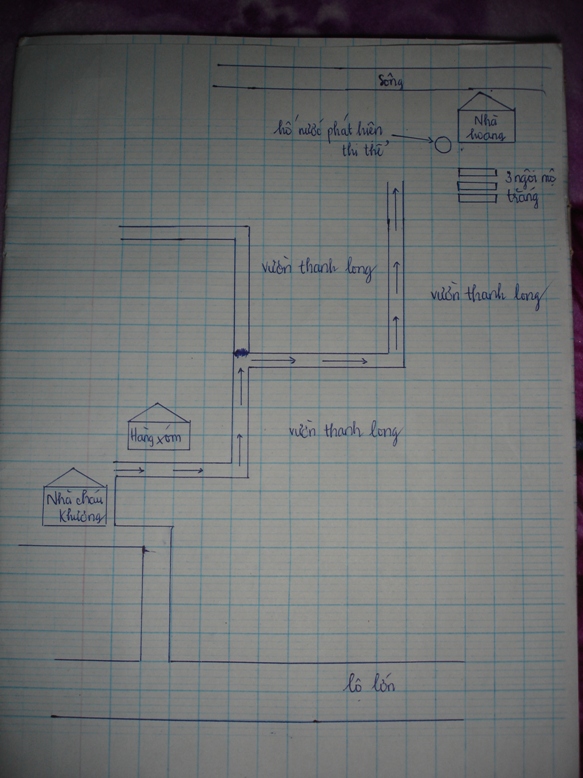 Sông
Nhà
hoang
hố nước phát hiện
thi thể
3 ngôi mộ
trắng
vườn thanh long
vườn thanh long
vườn thanh long
Hàng xóm
Nhà cháu
Khương
lộ lớn